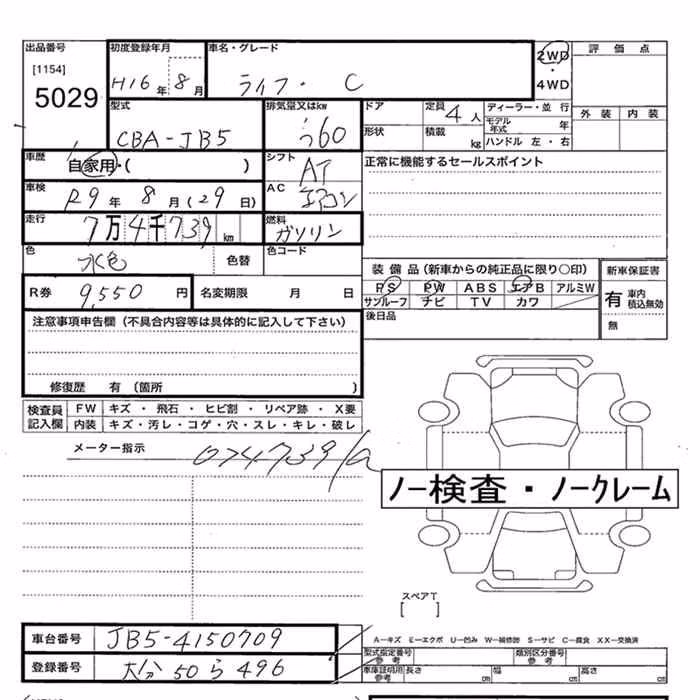 出品番号 初度登録年月 車名・グレード 2WD ・ 4WD 評価点
[1154] 5029 H16年 8月 ライフ・ C 外装 内装
型式 CBA-JB5 排気量又はkw 660 ドア 定員 4人 ディーラー・並行
形状 積載 kg モデル年式 年
ハンドル 左・右
車歴 自家用・( ) シフト AT 正常に機能するセールスポイント
車検 R9年 8月(29日) AC エアコン
走行 7万4千739km 燃料 ガソリン
色 水色 色替 色コード
装備品(新車からの純正品に限り○印) 新車保証書
R券 9,550円 名変期限 月 日 PS PW ABS エアB アルミW 有 車内積込無効
サンルーフ ナビ TV カワ
注意事項申告欄(不具合内容等は具体的に記入して下さい) 後日品 無
修復歴 有(箇所 )
検査員記入欄 FW キズ・飛石・ヒビ割・リペア跡・X要
内装 キズ・汚レ・コゲ・穴・スレ・キレ・破レ
メーター指示 074739
ノー検査・ノークレーム
スペアT
[ ]
車台番号 JB5-4150709 A-キズ E-エクボ U-凹み W-補修跡 S-サビ C-腐食 XX-交換済
型式指定番号 参考 類別区分番号 参考
登録番号 大分 50 ら 496 車庫証明用参考 長さ cm 幅 cm 高さ cm